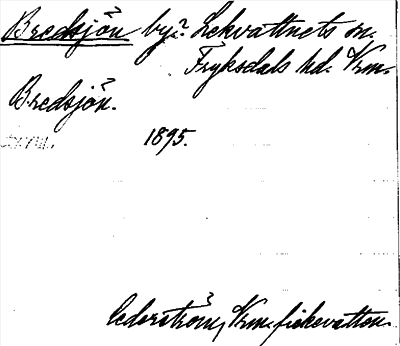 Bredsjön by? Lekvattnets sn.
Fryksdals hd. Vrm.
Bredsjön.
1895.
Cederström, Vrm. fiskevatten.